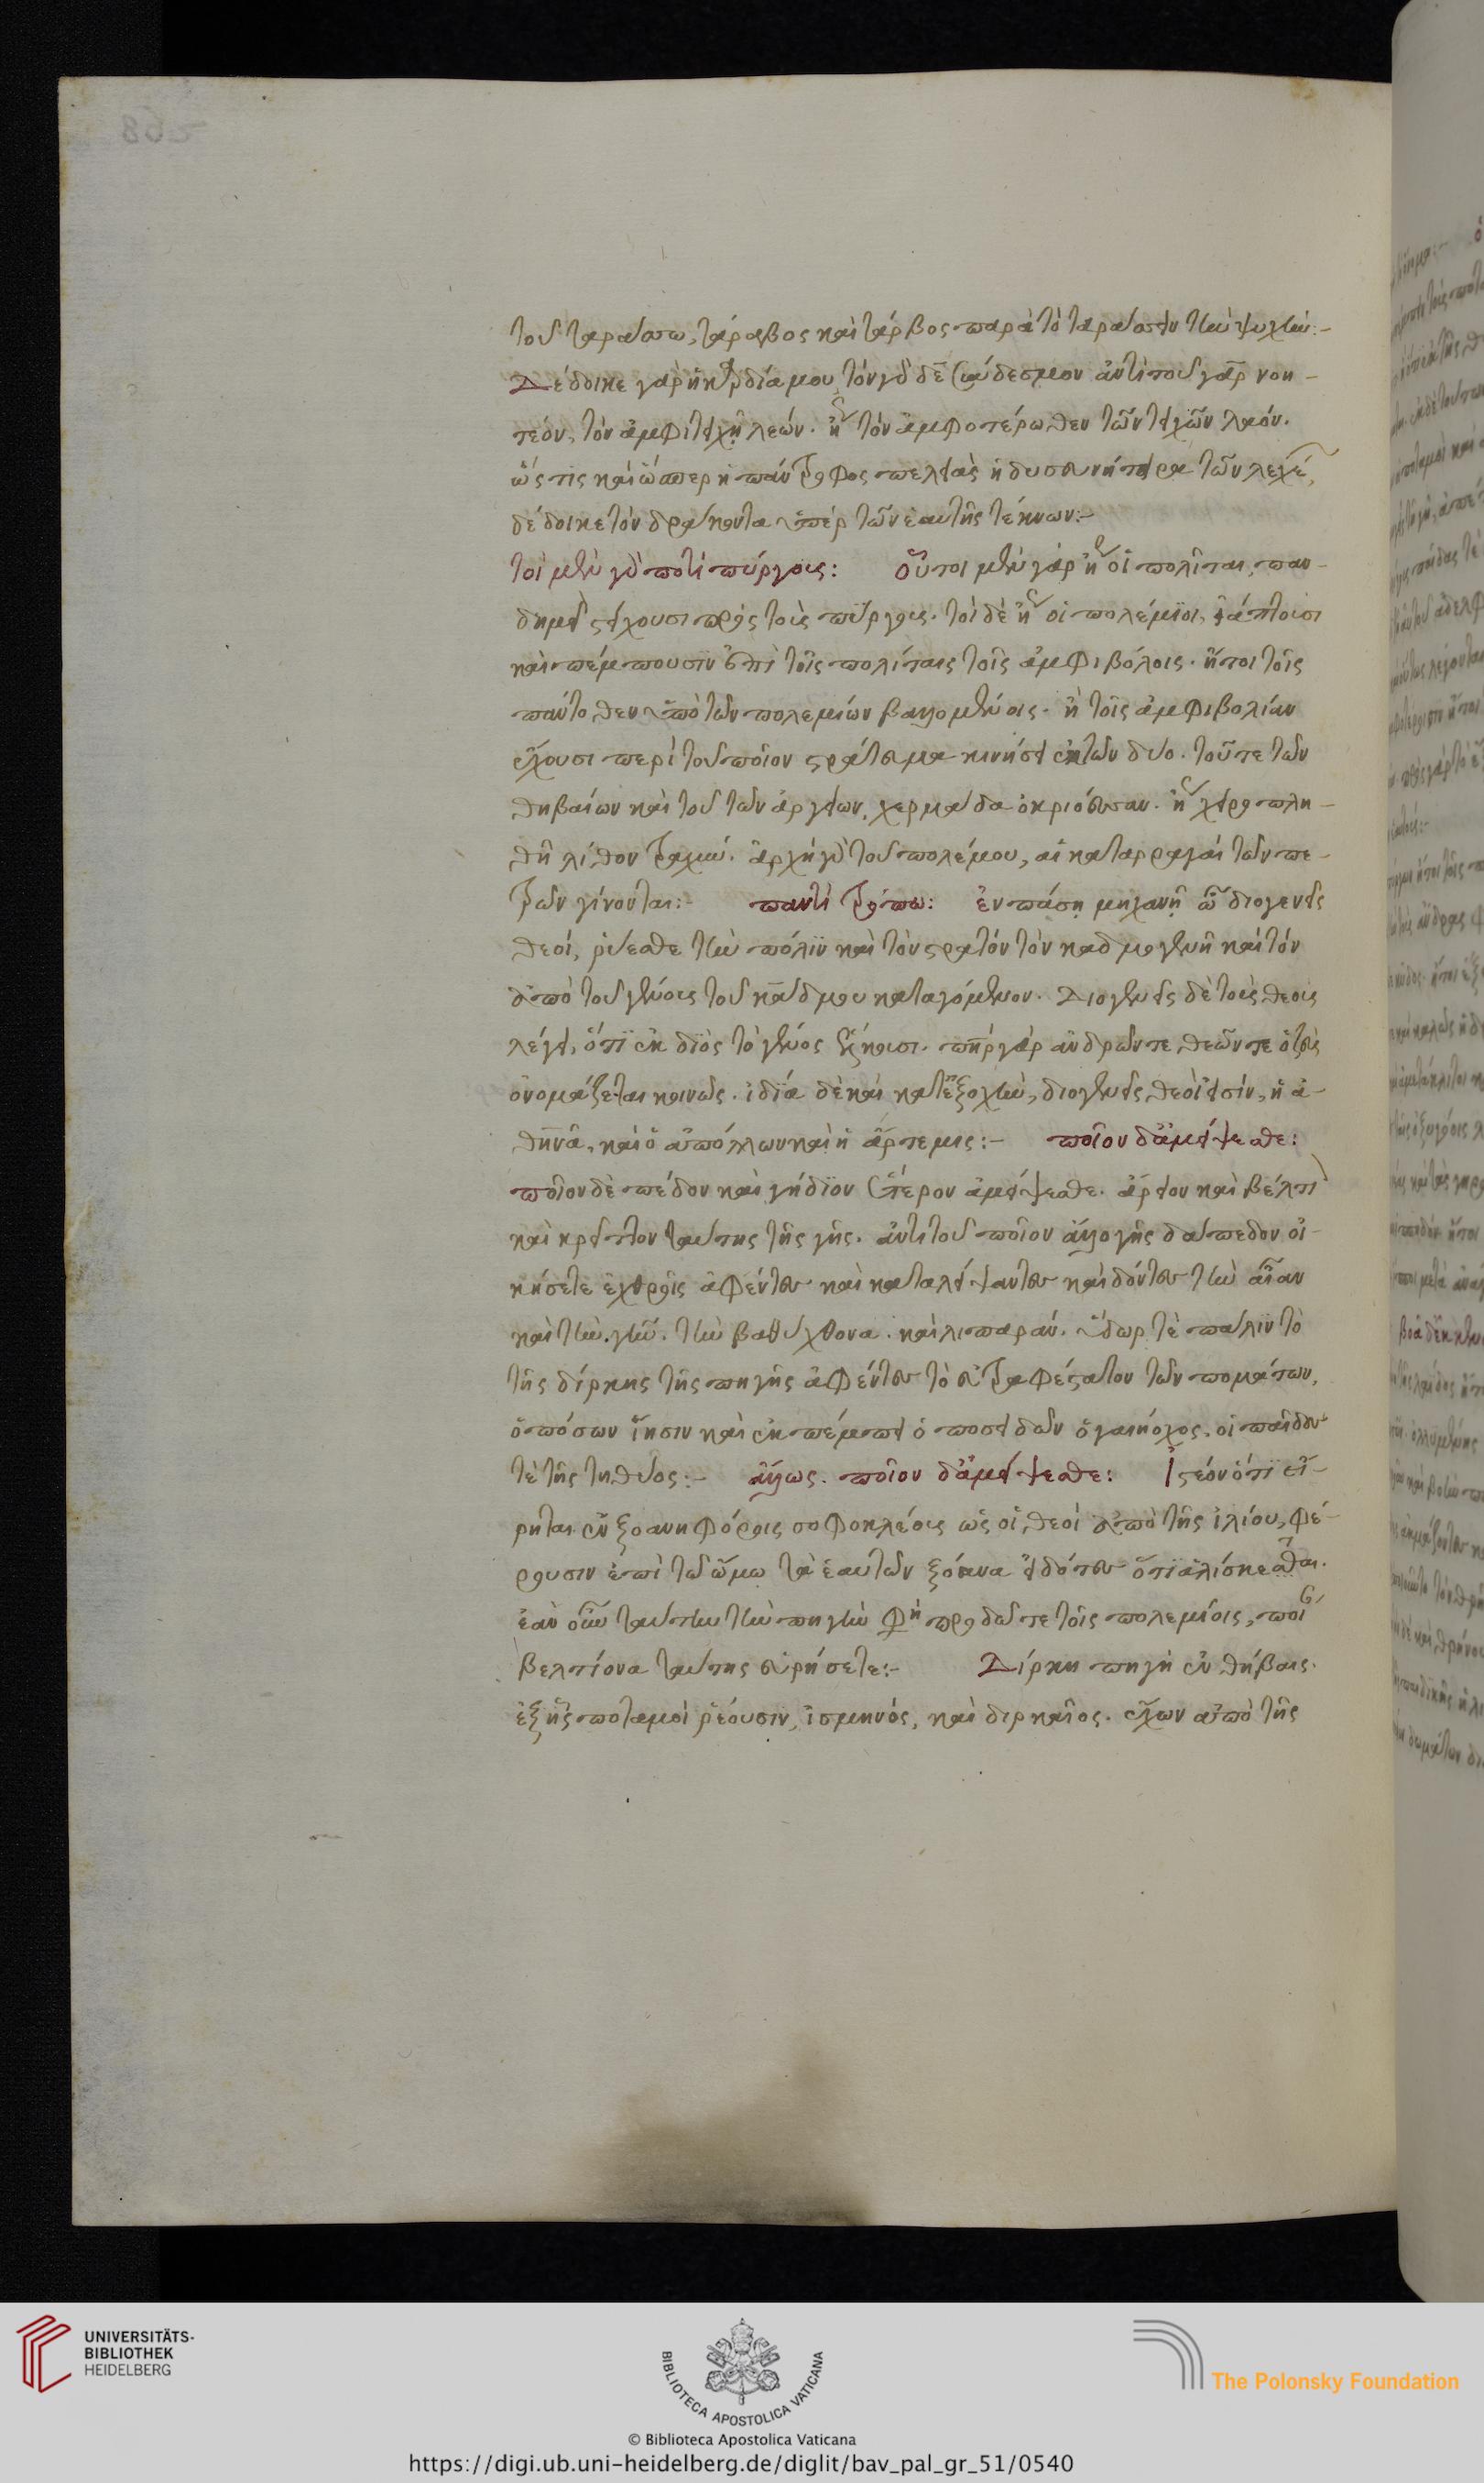 τοῦ ταράσσω, τάραβος καὶ τάρβος παρὰ τὸ ταράσσειν τὴν ψυχήν:-
Δέδοικε γὰρ ἡ καρδία μου, τὸν γὰρ δὲ σύνδεσμον ἀντὶ τοῦ γὰρ νοη-
τέον, τὸν ἀμφιτειχῆ λεών. ἤγουν τὸν ἀμφοτέρωθεν τῶν τειχῶν λαόν.
ὥς τις καὶ ὥσπερ ἡ πάντροφος πελειὰς ἡ δυσευνήτειρα τῶν λεχέων,
δέδοικε τὸν δράκοντα ὑπὲρ τῶν ἑαυτῆς τέκνων:-
τοὶ μὲν γὰρ ποτὶ πύργοις: οὗτοι μὲν γὰρ ἤγουν οἱ πολῖται, παν-
δημεὶ στείχουσι πρὸς τοὺς πύργους. τοὶ δὲ ἤγουν οἱ πολέμιοι, ἰάπτουσι
καὶ πέμπουσιν ἐπὶ τοῖς πολίταις τοῖς ἀμφιβόλοις. ἤτοι τοῖς
πάντοθεν ὑπὸ τῶν πολεμίων βαλλομένοις. ἢ τοῖς ἀμφιβολίαν
ἔχουσι περὶ τοῦ ποῖον στράτευμα κινήσει ἐκ τῶν δύο. τοῦ τε τῶν
θηβαίων καὶ τοῦ τῶν ἀργείων, χερμάδα ὀκριόεσσαν. ἤγουν χειροπλη-
θῆ λίθον τραχύν. ἀρχὴ γὰρ τοῦ πολέμου, αἱ καταρραγαὶ τῶν πε-
τρῶν γίνονται:- παντὶ τρόπῳ: ἐν πάσῃ μηχανῇ ὦ διογενεῖς
θεοί, ῥύεσθε τὴν πόλιν καὶ τὸν στρατὸν τὸν καδμογενῆ καὶ τὸν
ἀπὸ τοῦ γένους τοῦ κάδμου καταγόμενον. Διογενεῖς δὲ τοὺς θεοὺς
λέγει, ὅτι ἐκ διὸς τὸ γένος ἕλκουσι. πατὴρ γὰρ ἀνδρῶν τε θεῶν τε ὁ ζεὺς
ὀνομάζεται κοινῶς. ἰδίᾳ δὲ καὶ κατ' ἐξοχὴν, διογενεῖς θεοί εἰσιν, ἡ ἀ-
θηνᾶ, καὶ ὁ ἀπόλλων καὶ ἡ ἄρτεμις:- ποῖον δ' ἀμείψεσθε:
ποῖον δὲ πέδον καὶ γήδιον ἕτερον ἀμείψεσθε. ἄρειον καὶ βέλτιον
καὶ κρεῖττον ταύτης τῆς γῆς. ἀντὶ τοῦ ποῖον ἄλλο γῆς δάπεδον οἰ-
κήσετε ἐχθροῖς ἀφέντες καὶ καταλείψαντες καὶ δόντες τὴν αἶαν
καὶ τὴν γῆν. τὴν βαθύχθονα. καὶ λιπαράν. ὕδωρ τε πάλιν τὸ
τῆς δίρκης τῆς πηγῆς ἀφέντες τὸ εὐτραφέστατον τῶν πομάτων,
ὁπόσων ἵησιν καὶ ἐκπέμπει ὁ ποσειδῶν ὁ γαιήοχος. οἱ παῖδες
τὲ τῆς τηθύος:- ἄλλως. ποῖον δ' ἀμείψεσθε: Ἰστέον ὅτι εἴ-
ρηται ἐν ξοανηφόροις σοφοκλέους ὡς οἱ θεοὶ ἀπὸ τῆς ἰλίου, φέ-
ρουσιν ἐπὶ τῶ ὤμω τὰ ἑαυτῶν ξόανα εἰδότες ὅτι ἁλίσκεσθαι.
ἐὰν οὖν ταύτην τὴν πηγὴν φη προδῶτε τοῖς πολεμίοις, ποῖον
βελτίονα ταύτης εὑρήσετε:- Δίρκη πηγὴ ἐν θήβαις.
ἐξ ἧς ποταμοὶ ῥέουσιν, ἰσμηνός, καὶ διρκαῖος. ἔχων ἀπὸ τῆς
UNIVERSITÄTS-
BIBLIOTHEK
HEIDELBERG
BIBLIOTECA APOSTOLICA VATICANA
The Polonsky Foundation
© Biblioteca Apostolica Vaticana
https://digi.ub.uni-heidelberg.de/diglit/bav_pal_gr_51/0540